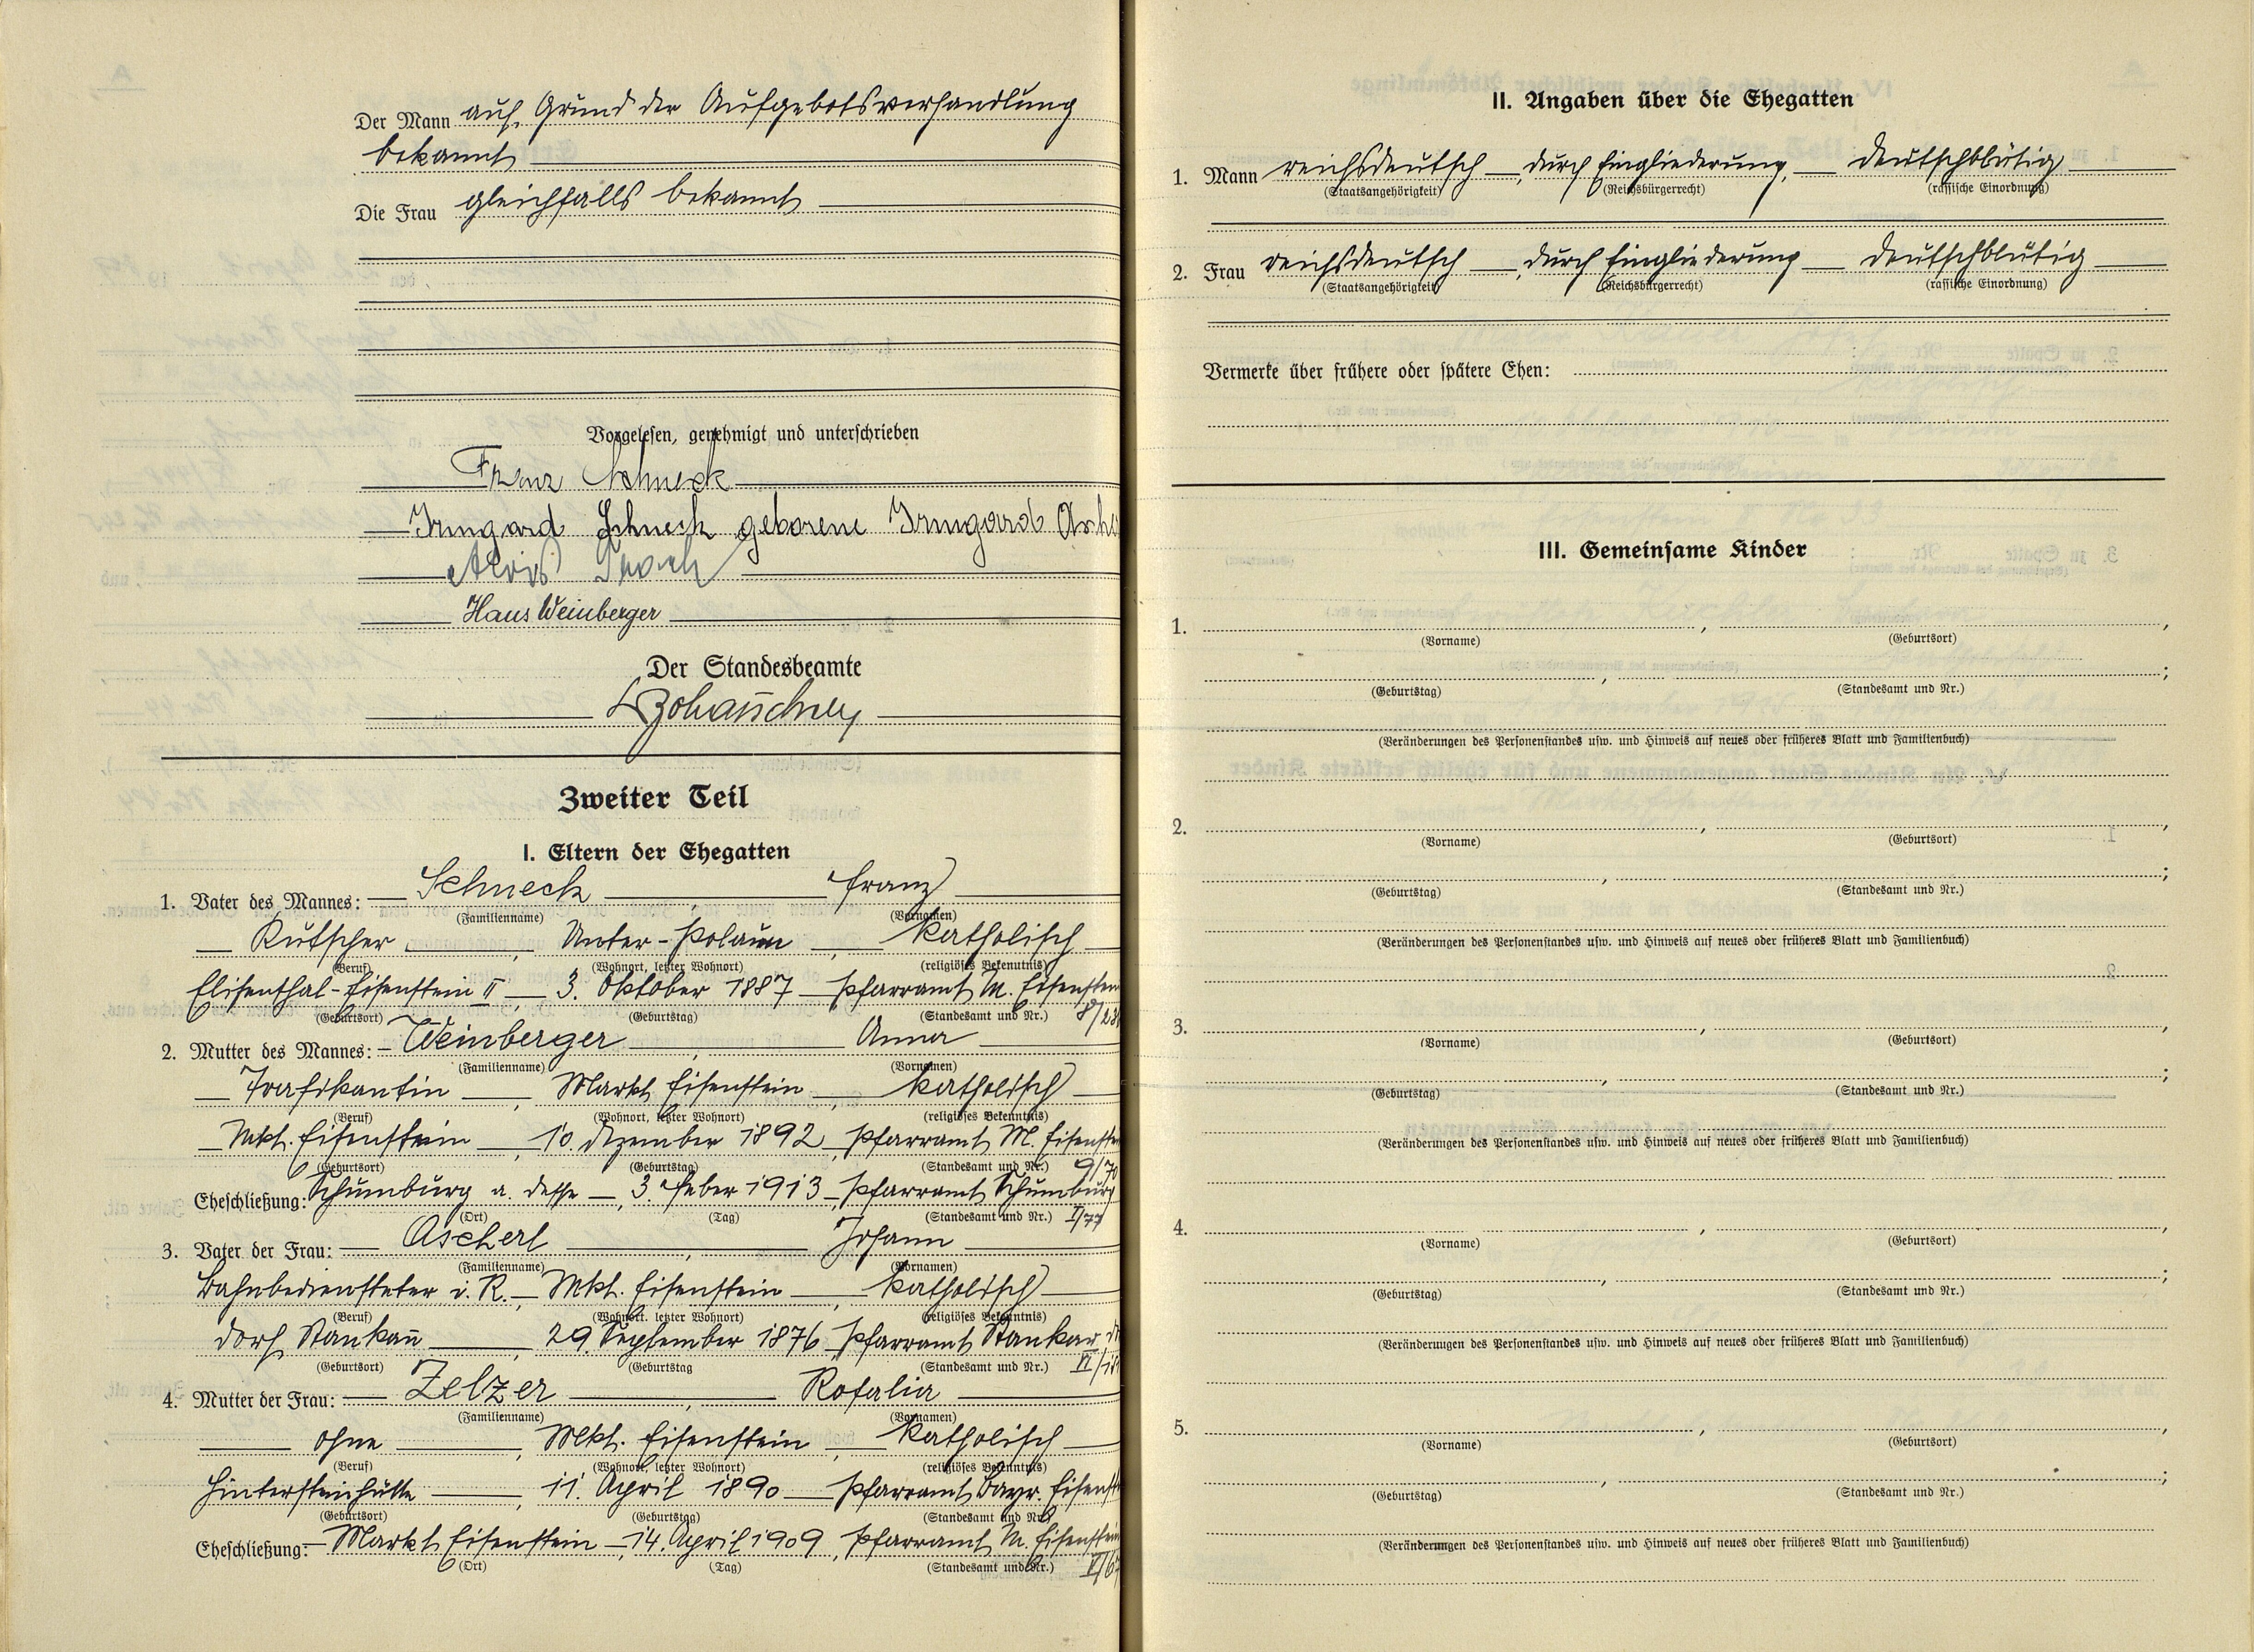 Der Mann auf Grund der Aufgebotsverhandlung
bekannt
Die Frau gleichfalls bekannt
Vorgelesen, genehmigt und unterschrieben
Franz Schneck
Irmgard Schneck geborene Irmgard
Alois
Hans Weinberger
Der Standesbeamte
Zweiter Teil
I. Eltern der Ehegatten
1. Vater des Mannes: Schneck, Franz
(Familienname) (Vornamen)
Kutscher, Unter-Polaun, katholisch
(Beruf) (Wohnort, letzter Wohnort) (religiöses Bekenntnis)
Elisenthal-Eisenstein II, 3. Oktober 1887 Pfarramt M. Eisenstein
(Geburtsort) (Geburtstag) (Standesamt und Nr.)
2. Mutter des Mannes: Weinberger, Anna
(Familienname) (Vornamen)
Trafikantin, Markt Eisenstein, katholisch
(Beruf) (Wohnort, letzter Wohnort) (religiöses Bekenntnis)
Mkt. Eisenstein, 10. Dezember 1892, Pfarramt M.
(Geburtsort) (Geburtstag) (Standesamt und Nr.) 9/70
Eheschließung: Schumburg a. Desse, 3. Feber 1913, Pfarramt Schumburg
(Ort) (Tag) (Standesamt und Nr.) I/77
3. Vater der Frau: Ascherl, Johann
(Familienname) (Vornamen)
Bahnbediensteter i. R., Mkt. Eisenstein, katholisch
(Beruf) (Wohnort, letzter Wohnort) (religiöses Bekenntnis)
Dorf Stankau, 29. September 1876, Pfarramt Stankau
(Geburtsort) (Geburtstag (Standesamt und Nr.)
4. Mutter der Frau: Zelzer, Rosalia
(Familienname) (Vornamen)
ohne, Mkt. Eisenstein, katholisch
(Beruf) (Wohnort, letzter Wohnort) (religiöses Bekenntnis)
Hintersteinhütte, 11. April 1890 Pfarramt Bayr.
(Geburtsort) (Geburtstag) (Standesamt und Nr.)
Eheschließung: Markt Eisenstein, 14. April 1909, Pfarramt M. Eisenstein
(Ort) (Tag) (Standesamt und Nr.)
II. Angaben über die Ehegatten
1. Mann reichsdeutsch, durch Eingliederung, deutschblütig
(Staatsangehörigkeit) (Reichsbürgerrecht) (rassische Einordnung)
2. Frau reichsdeutsch, durch Eingliederung deutschblütig
(Staatsangehörigkeit) (Reichsbürgerrecht) (rassische Einordnung)
Vermerke über frühere oder spätere Ehen:
III. Gemeinsame Kinder
1. , ,
(Vorname) (Geburtsort)
, ;
(Geburtstag) (Standesamt und Nr.)
(Veränderungen des Personenstandes usw. und Hinweis auf neues oder früheres Blatt und Familienbuch)
2. , ,
(Vorname) (Geburtsort)
, ;
(Geburtstag) (Standesamt und Nr.)
(Veränderungen des Personenstandes usw. und Hinweis auf neues oder früheres Blatt und Familienbuch)
3. , ,
(Vorname) (Geburtsort)
, ;
(Geburtstag) (Standesamt und Nr.)
(Veränderungen des Personenstandes usw. und Hinweis auf neues oder früheres Blatt und Familienbuch)
4. , ,
(Vorname) (Geburtsort)
, ;
(Geburtstag) (Standesamt und Nr.)
(Veränderungen des Personenstandes usw. und Hinweis auf neues oder früheres Blatt und Familienbuch)
5. , ,
(Vorname) (Geburtsort)
, ;
(Geburtstag) (Standesamt und Nr.)
(Veränderungen des Personenstandes usw. und Hinweis auf neues oder früheres Blatt und Familienbuch)